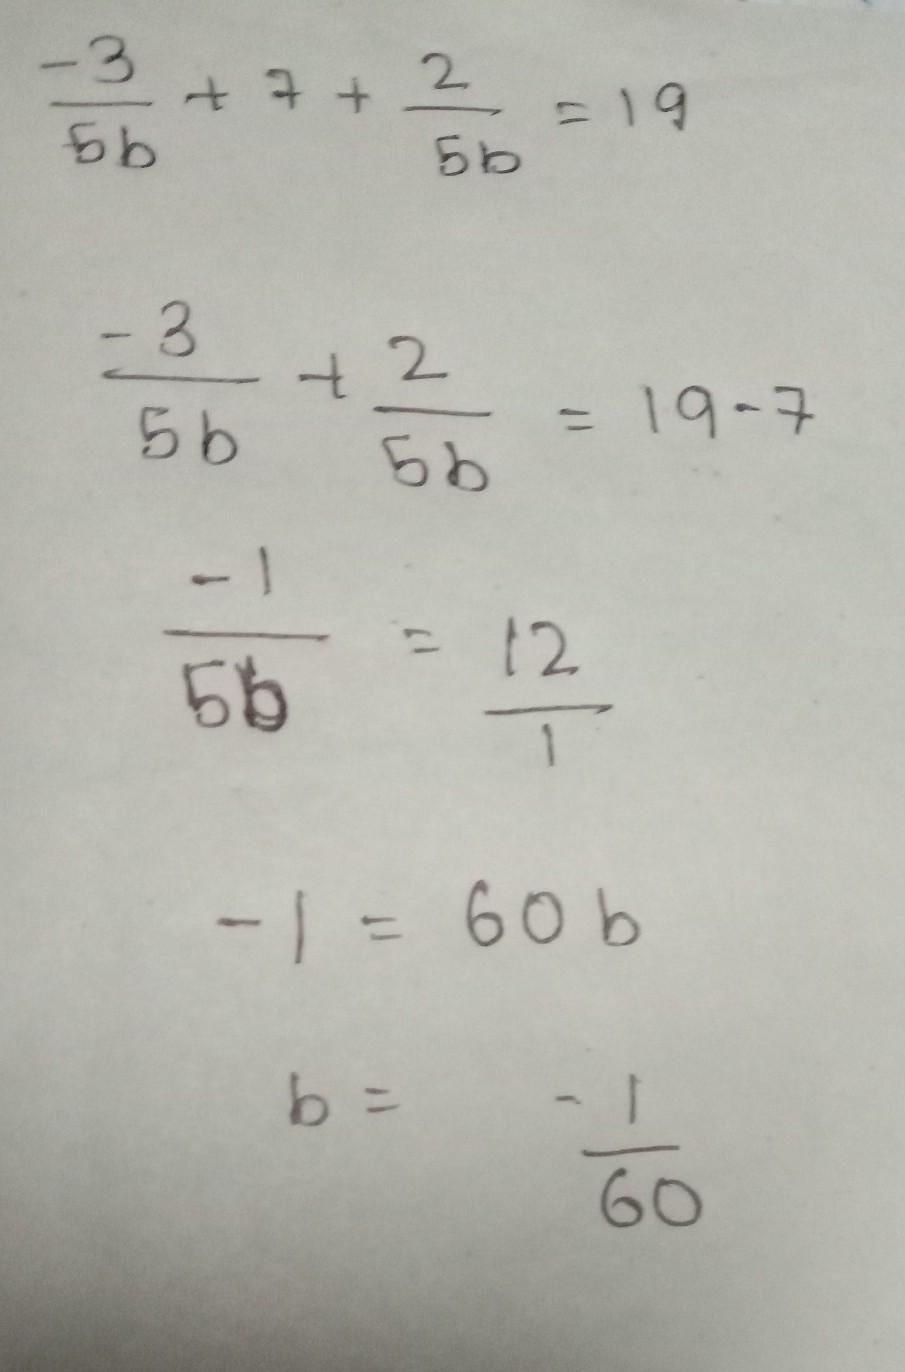 -3/5b + 7 + 2/5b = 19
-3/5b + 2/5b = 19 - 7
-1/5b = 12/1
-1 = 60b
b = -1/60